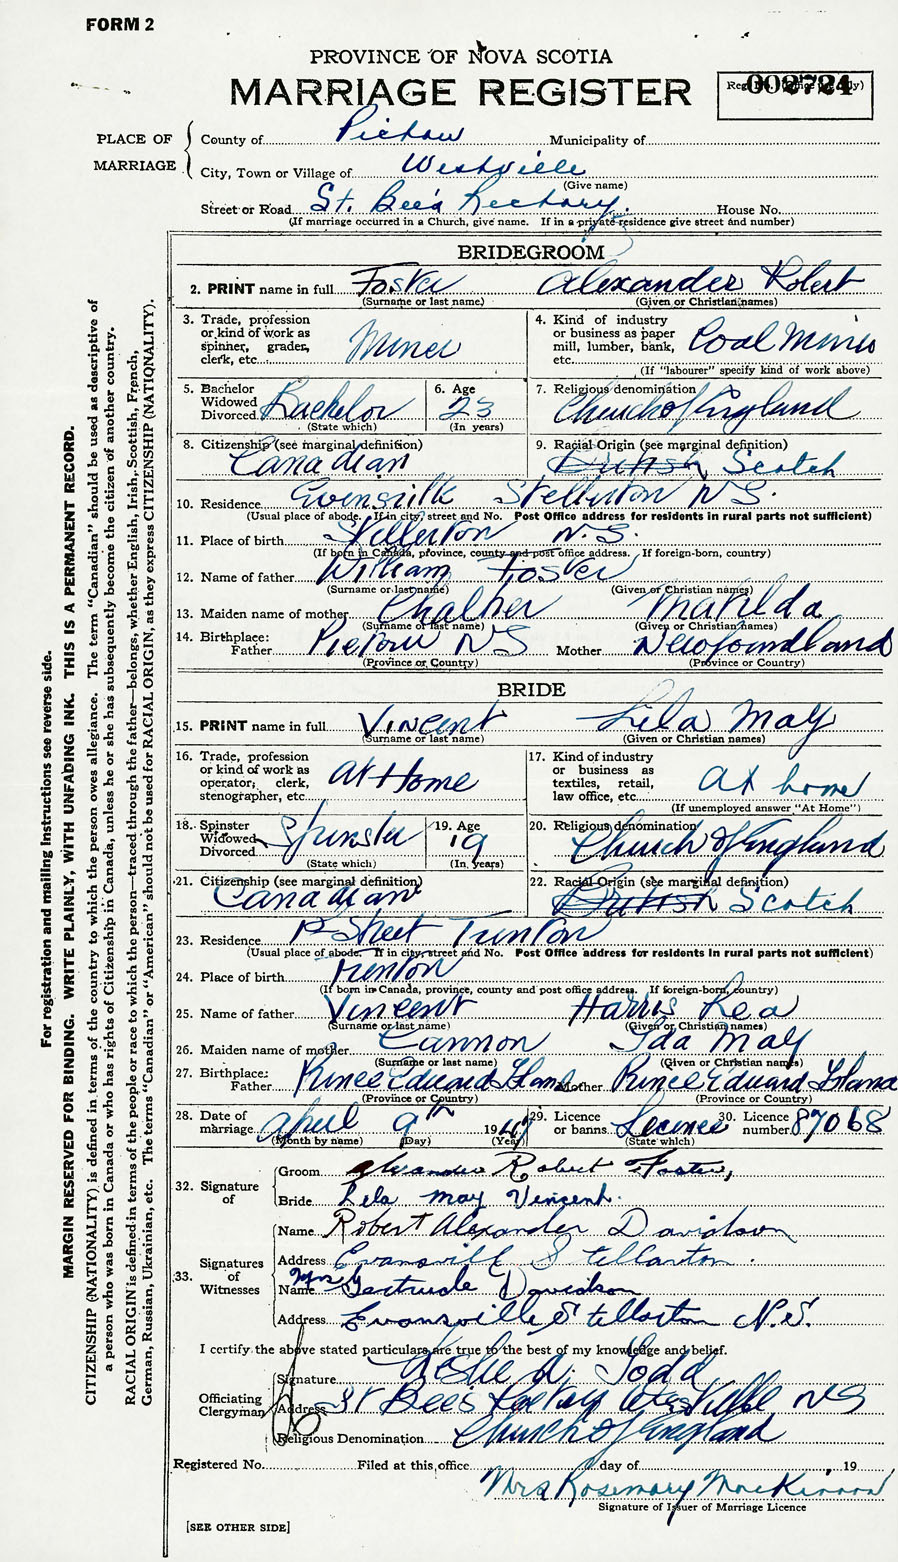 FORM 2
PROVINCE OF NOVA SCOTIA
MARRIAGE REGISTER
002724
PLACE OF MARRIAGE
County of Pictou Municipality of
City, Town or Village of Westville
(Give name)
Street or Road St. Bee's Rectory. House No.
(If marriage occurred in a Church, give name. If in a private residence give street and number)
BRIDEGROOM
2. PRINT name in full Foster Alexander Robert
(Surname or last name) (Given or Christian names)
3. Trade, profession or kind of work as spinner, grader, clerk, etc. Miner
4. Kind of industry or business as paper mill, lumber, bank, etc. Coal Mines
(If "labourer" specify kind of work above)
5. Bachelor Widowed Divorced Bachelor
(State which)
6. Age 23
(In years)
7. Religious denomination Church of England
8. Citizenship (see marginal definition) Canadian
9. Racial Origin (see marginal definition) British Scotch
10. Residence Evansville Stellerton N.S.
(Usual place of abode. If in city, street and No. Post Office address for residents in rural parts not sufficient)
11. Place of birth Stellerton N.S.
(If born in Canada, province, county and post office address. If foreign-born, country)
12. Name of father William Foster
(Surname or last name) (Given or Christian names)
13. Maiden name of mother Chalker Matilda
(Surname or last name) (Given or Christian names)
14. Birthplace: Father Pictou NS Mother Newfoundland
(Province or Country) (Province or Country)
BRIDE
15. PRINT name in full Vincent Lila May
(Surname or last name) (Given or Christian names)
16. Trade, profession or kind of work as operator, clerk, stenographer, etc. At Home
17. Kind of industry or business as textiles, retail, law office, etc. At home
(If unemployed answer "At Home")
18. Spinster Widowed Divorced Spinster
(State which)
19. Age 19
(In years)
20. Religious denomination Church of England
21. Citizenship (see marginal definition) Canadian
22. Racial Origin (see marginal definition) British Scotch
23. Residence Street Trenton
(Usual place of abode. If in city, street and No. Post Office address for residents in rural parts not sufficient)
24. Place of birth Trenton
(If born in Canada, province, county and post office address. If foreign-born, country)
25. Name of father Vincent Harris Rea
(Surname or last name) (Given or Christian names)
26. Maiden name of mother Cannon Ida May
(Surname or last name) (Given or Christian names)
27. Birthplace: Father Prince Edward Island Mother Prince Edward Island
(Province or Country) (Province or Country)
28. Date of marriage April 9th 19
(Month by name) (Day) (Year)
29. Licence or banns License
(State which)
30. Licence number 87068
32. Signature of
Groom Alexander Robert Foster,
Bride Lila may Vincent.
33. Signatures of Witnesses
Name Robert Alexander Davidson
Address Evansville Stellarton.
Name Mrs Gertrude Davidson
Address Evansville Stellarton N.S.
I certify the above stated particulars are true to the best of my knowledge and belief.
Officiating Clergyman
Signature Leslie A. Todd
Address St Bee's Rectory Westville NS
Religious Denomination Church of England
Registered No. Filed at this office day of , 19
Mrs Rosemary MacKinnon
Signature of Issuer of Marriage Licence
[SEE OTHER SIDE]
For registration and mailing instructions see reverse side.
MARGIN RESERVED FOR BINDING. WRITE PLAINLY, WITH UNFADING INK. THIS IS A PERMANENT RECORD.
CITIZENSHIP (NATIONALITY) is defined in terms of the country to which the person owes allegiance. The term "Canadian" should be used as descriptive of
a person who was born in Canada or who has rights of Citizenship in Canada, unless he or she has subsequently become the citizen of another country.
RACIAL ORIGIN is defined in terms of the people or race to which the person—traced through the father—belongs, whether English, Irish, Scottish, French,
German, Russian, Ukrainian, etc. The terms "Canadian" or "American" should not be used for RACIAL ORIGIN, as they express CITIZENSHIP (NATIONALITY).